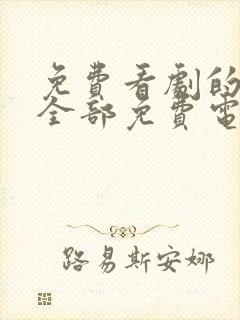 免費看劇的
全部免費電
路易斯安娜